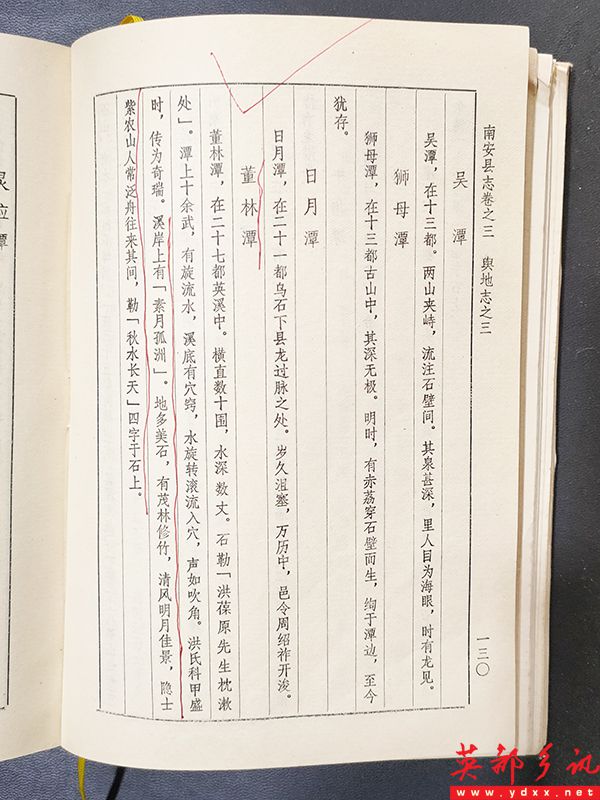 南安县志卷之三　舆地志之三
一三〇
吴潭
吴潭，在十三都。两山夹峙，流注石壁间。其泉甚深，里人目为海眼，时有龙见。
狮母潭
狮母潭，在十三都古山中，其深无极。明时，有赤荔穿石壁而生，绚于潭边，至今
犹存。
日月潭
日月潭，在二十一都乌石下县龙过脉之处。岁久沮塞，万历中，邑令周绍祚开浚。
董林潭
董林潭，在二十七都英溪中。横直数十围，水深数丈。石勒「洪葆原先生枕漱
处」。潭上十余武，有旋流水，溪底有穴窍，水旋转滚流入穴，声如吹角。洪氏科甲盛
时，传为奇瑞。溪岸上有「素月孤洲」。地多美石，有茂林修竹，清风明月佳景，隐士
紫农山人常泛舟往来其间，勒「秋水长天」四字于石上。
潭
英都乡讯
www.ydxx.net